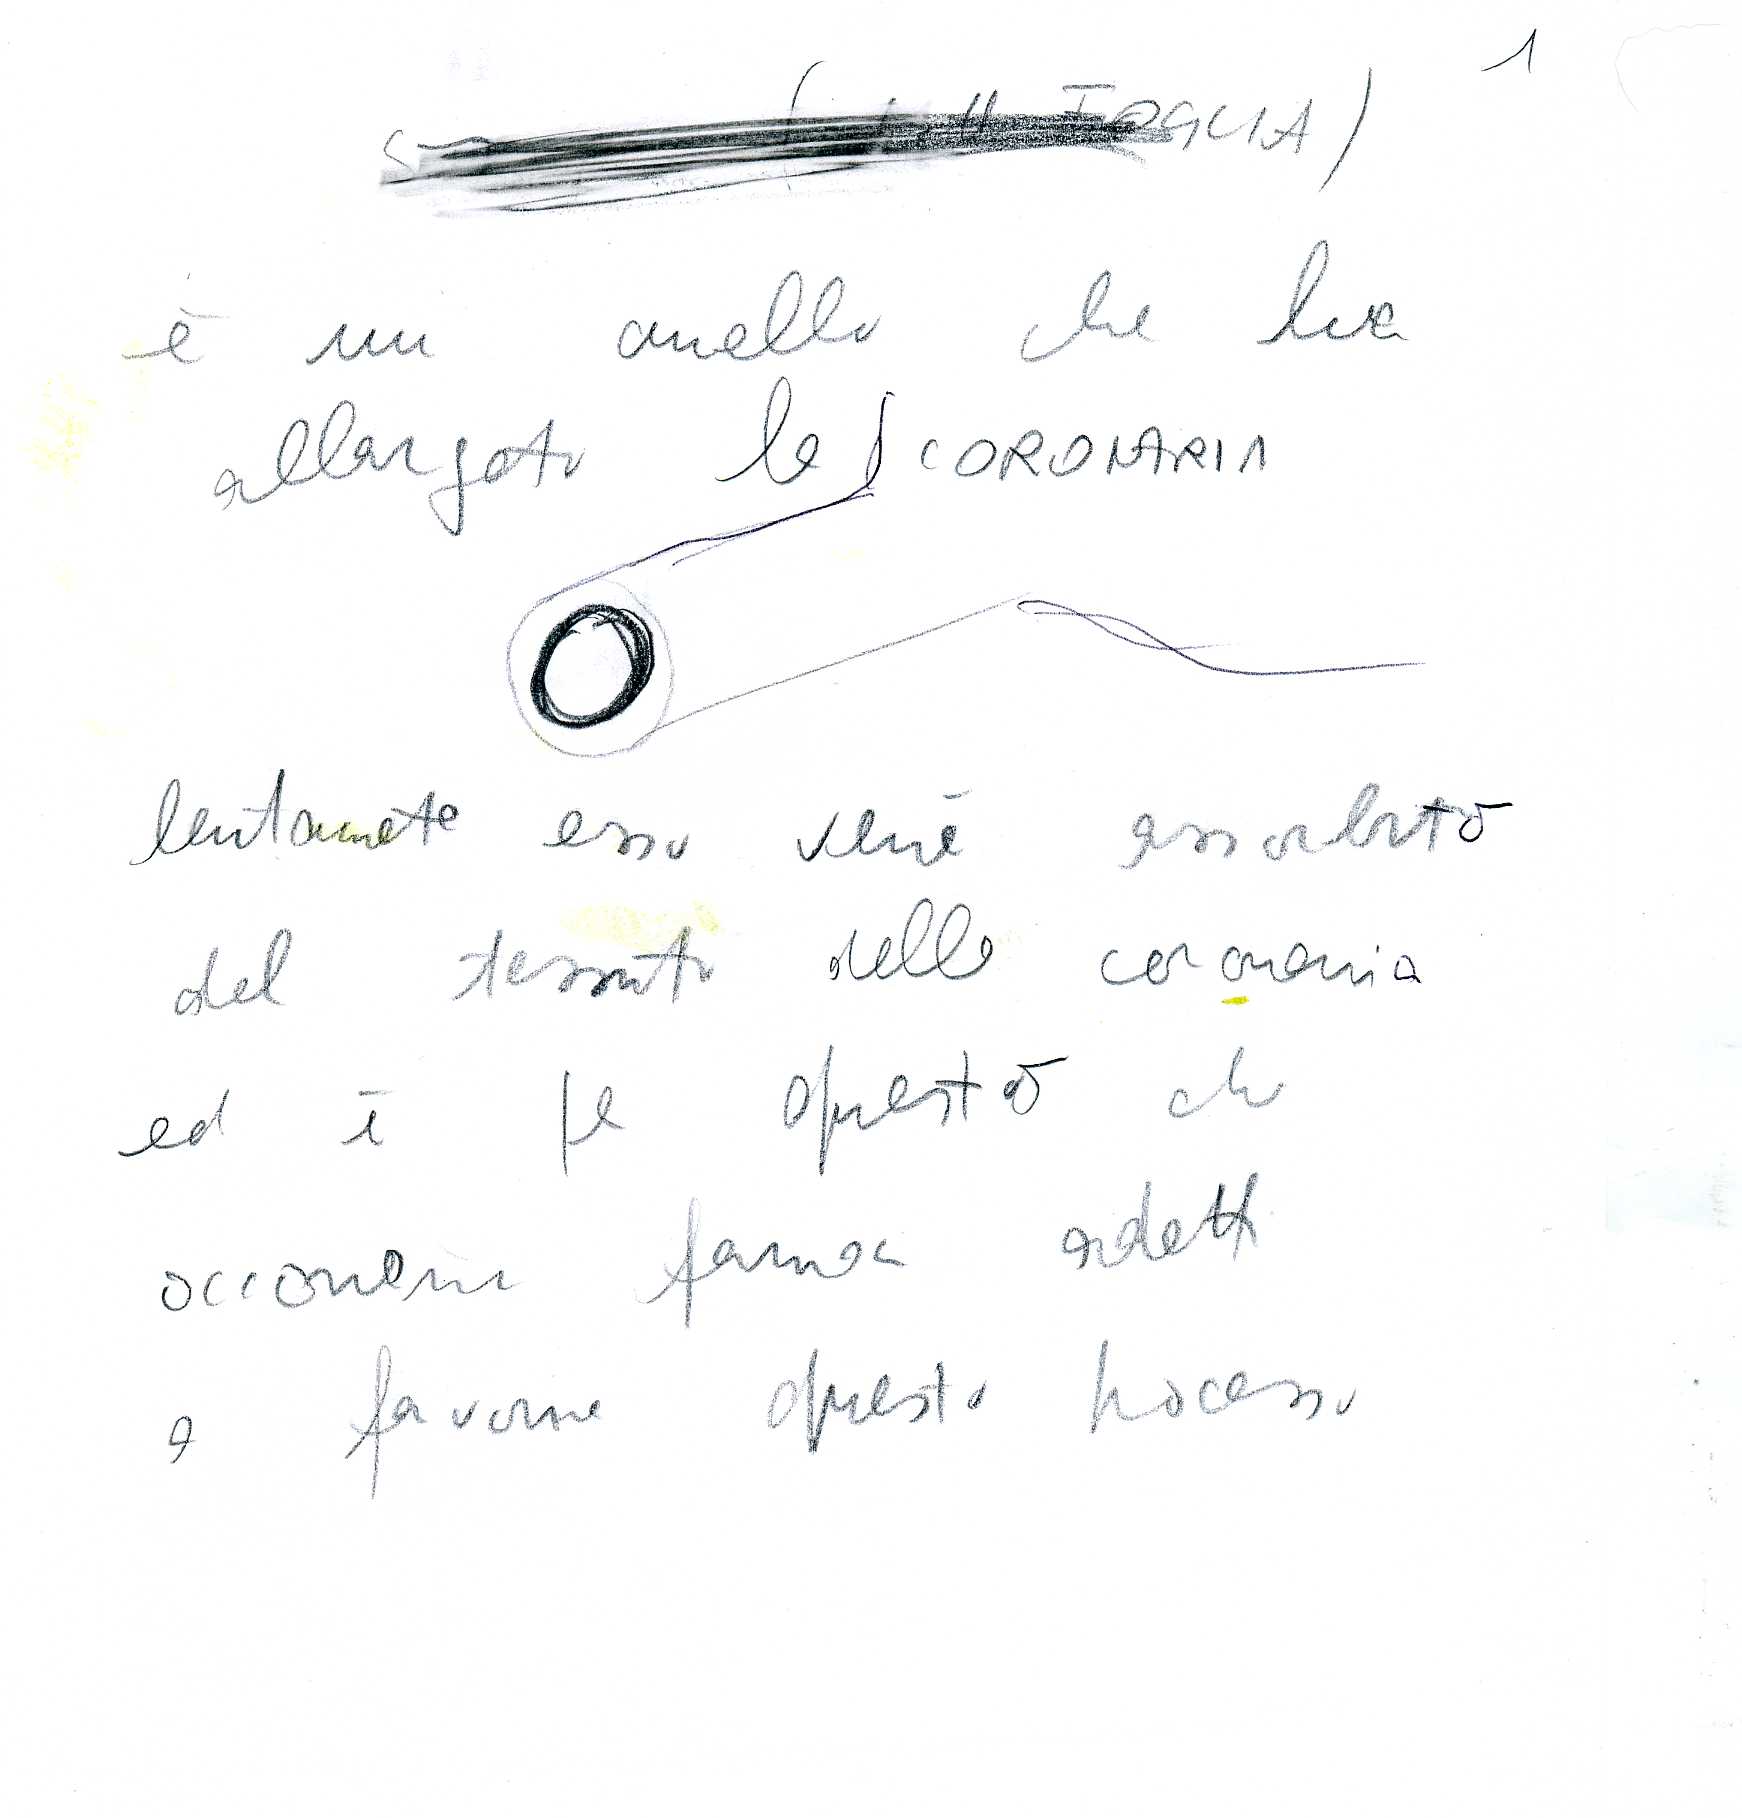 1
FOGLIA)
è un anello che ha
allargato la CORONARIA
lentamete esso viene assorbito
dal tessuto della coronaria
ed è pe questo che
occorrem farmac adatti
a favorire questo processo